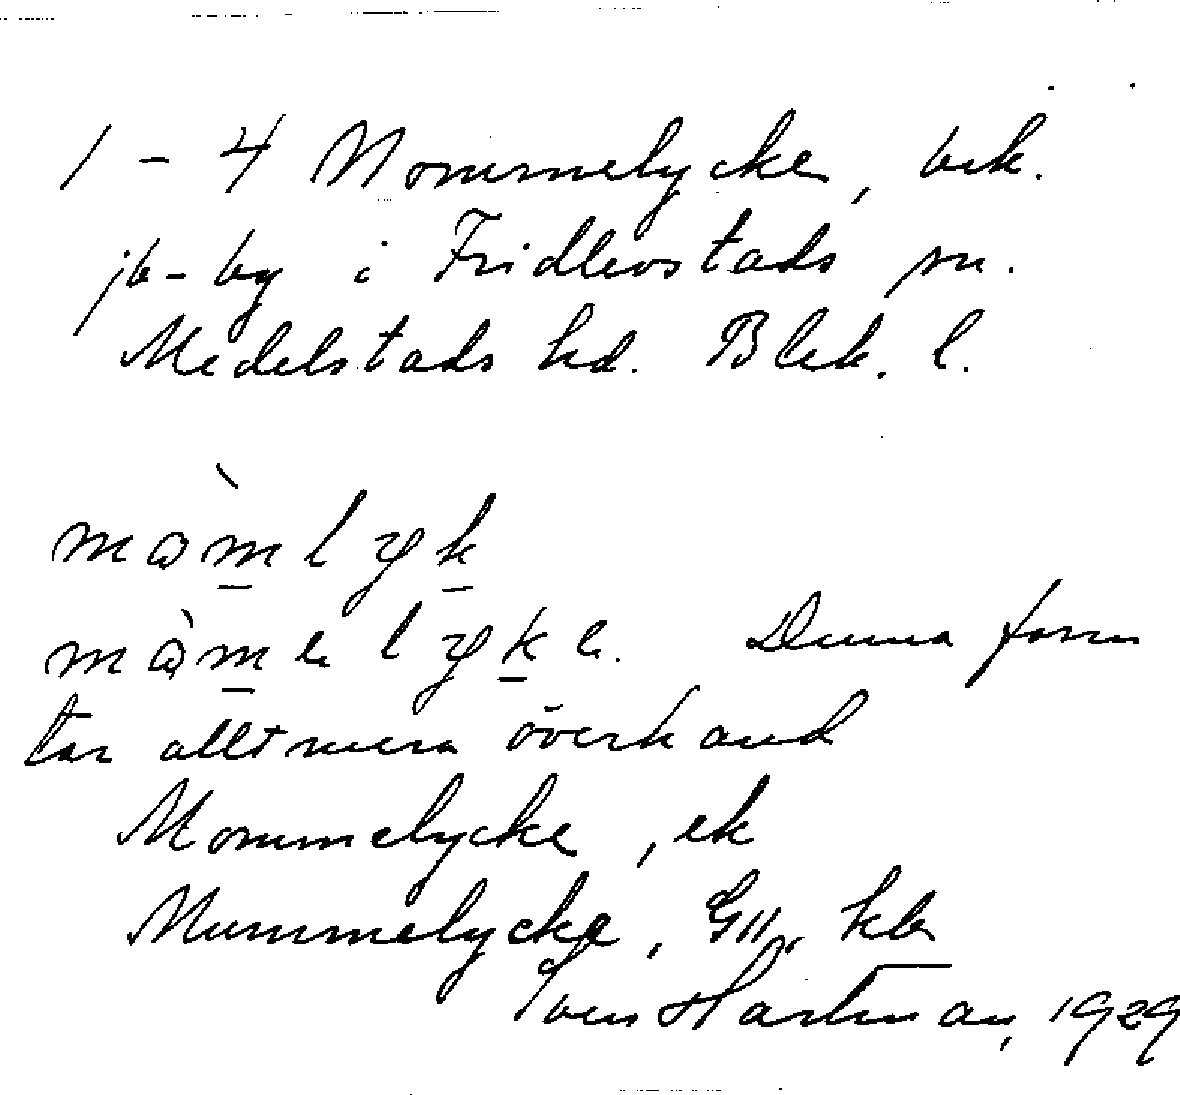 1-4 Mommelycke, bek.
jb-by i Fridlevstads sn.
Medelstads hd. Blek. l.
Denna form
tar alltmera överhand
Mommelycke, ek
Mummelycke, GII, kb
Sven Hartman, 1929